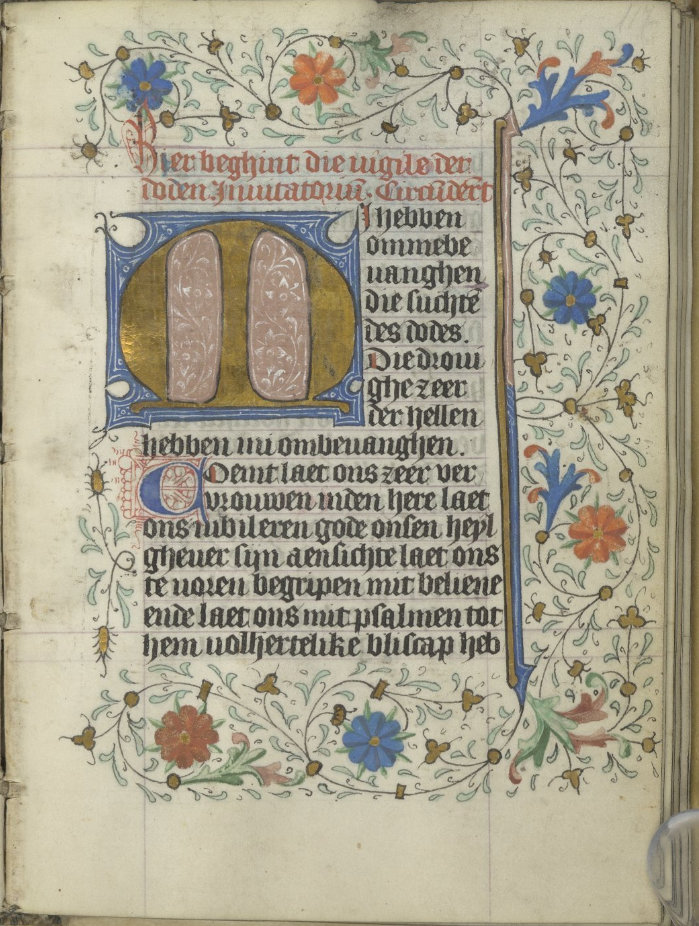 Hier beghint die uigile der
doden Inuitatoriū. Circūdeēt
MI hebben
ommebe
uanghen
die suchtē
des dodes.
Die droui
ghe zeer
der hellen
hebben mi ombeuanghen.
Coemt laet ons zeer ver
vrouwen inden here laet
ons iubileren gode onsen heyl
gheuer sijn aensichte laet ons
te uoren begripen mit beliene
ende laet ons mit psalmen tot
hem uolhertelike bliscap heb